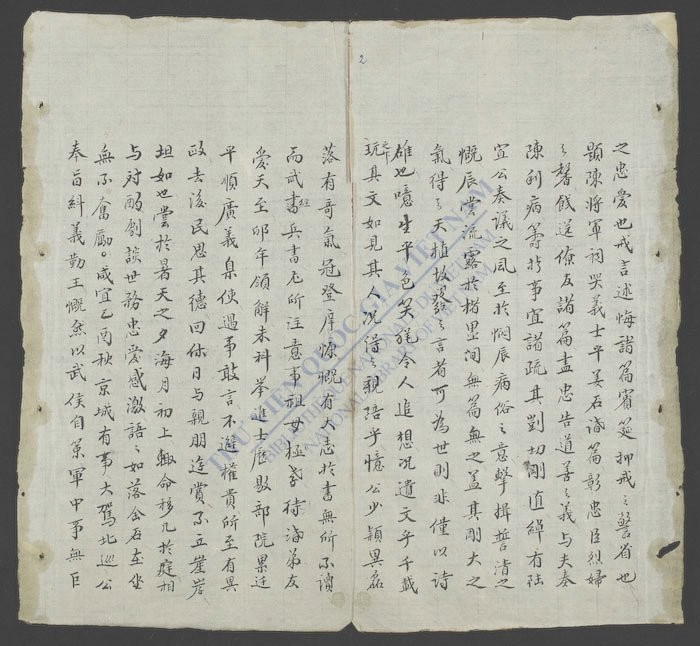 2
之忠愛也戒言述悔諸篇賓筵抑戒之警省也
題陳將軍祠哭義士平姜后諸篇彰忠臣烈婦
之馨餞送僚友諸篇盡忠告道善之義与夫奏
陳利病籌於事宜諸疏其剴切剛直綽有陸
宣公奏議之風至於悯辰病俗之意擊揖誓清之
慨辰嘗流露於楮墨间無篇無之盖其剛大之
氣得之天植故發之言者可為世則非僅以詩
雄也噫生平色笑猶令人追想况遺文乎千載
玩其文如見其人况得之親陪乎憶公少穎異磊
落有哥氣冠登庠慷慨有大志於書無所不讀
而武經書兵書尤所注意事祖母極孝待海弟友
愛天至卯年領解未科举進士歷敭部院累迁
平順廣義臬使過事敢言不避權貴所至有異
政去後民思其德回休日与親朋逰賞不立崖岸
坦如也嘗於暑天之夕海月初上輙命移几於庭相
与対酌劇談世務忠愛感激語之如落金石在坐
無不奮勵。咸宜乙酉秋京城有事大駕北巡公
奉旨糾義勤王慨然以武侯自策軍中事無巨
THƯ VIỆN QUỐC GIA VIỆT NAM
BIBLIOTHÈQUE NATIONALE DU VIETNAM
NATIONAL LIBRARY OF VIETNAM